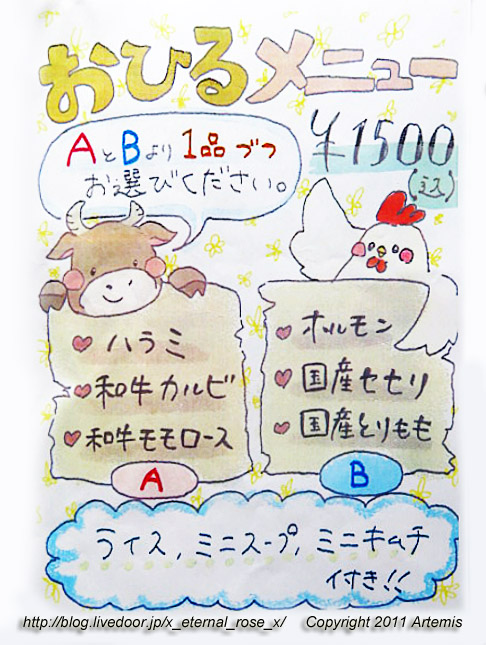 おひるメニュー
¥1500
(税込)
AとBより1品づつ
お選びください。
ハラミ
和牛カルビ
和牛モモロース
A
ホルモン
国産セセリ
国産とりもも
B
ライス, ミニスープ, ミニキムチ
付き!!
http://blog.livedoor.jp/x_eternal_rose_x/ Copyright 2011 Artemis